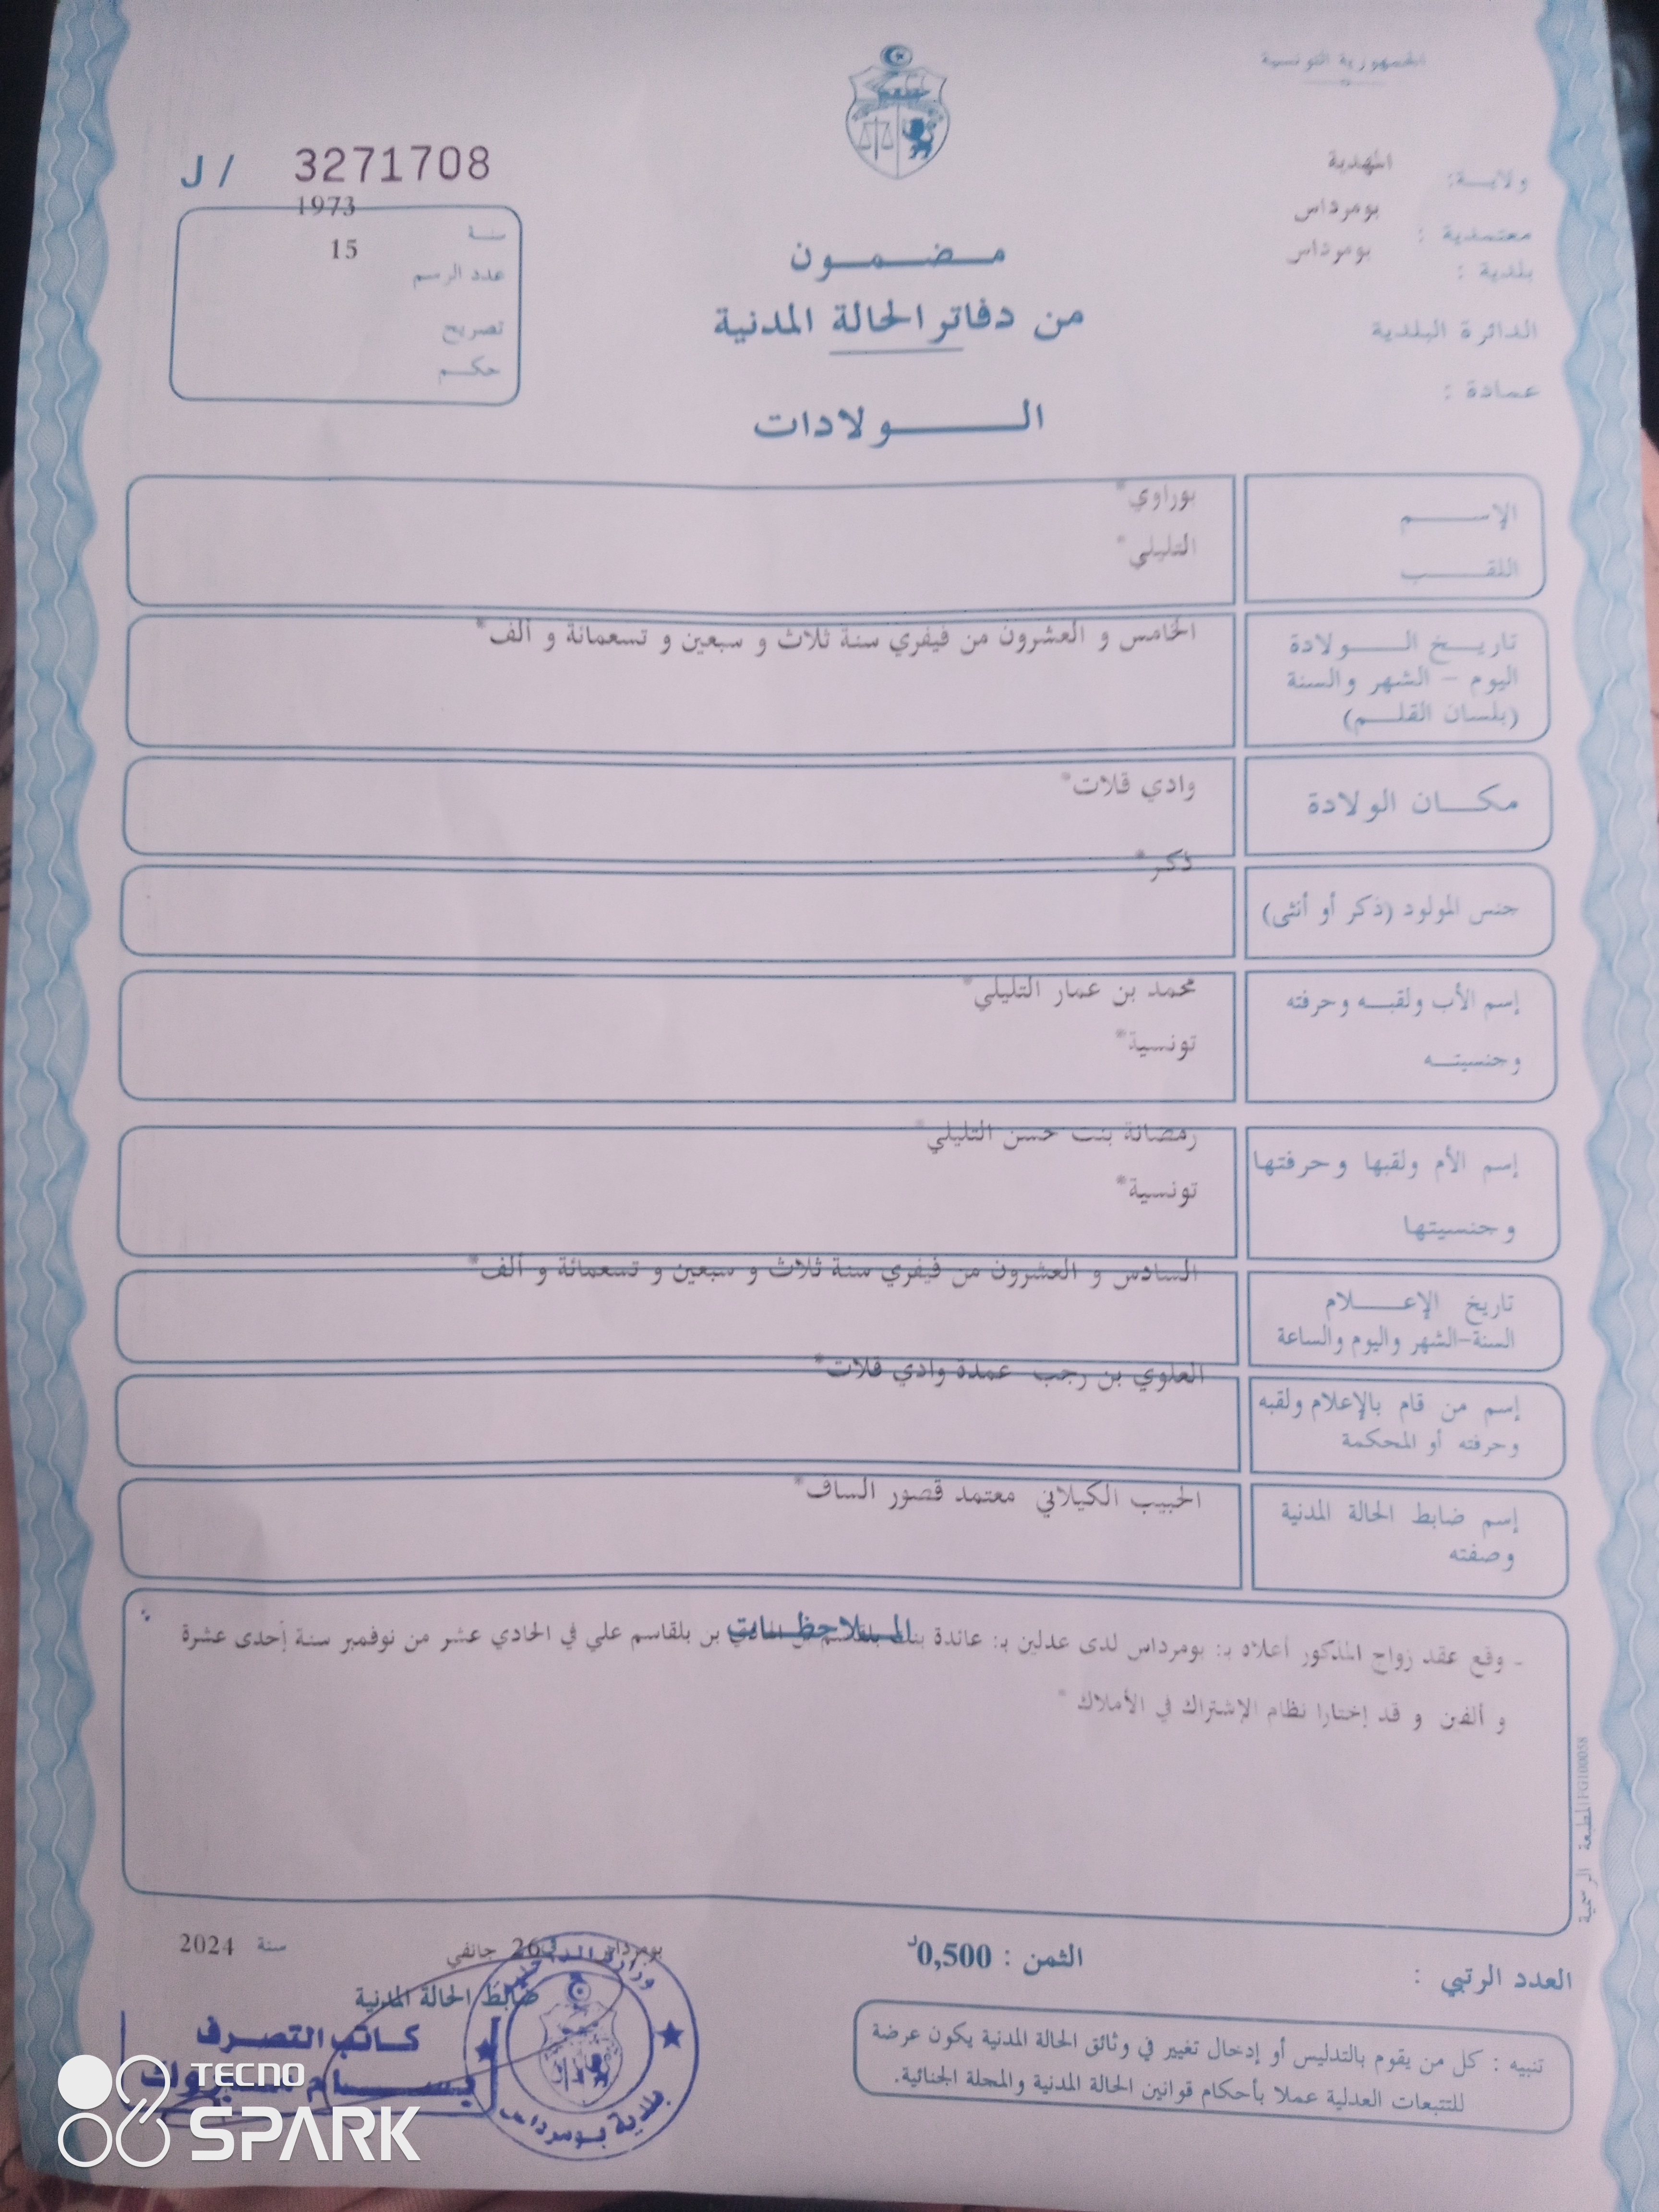 الجمهورية التونسية
ولاية: المهدية
معتمدية : بومرداس
بلدية : بومرداس
الدائرة البلدية
عمادة :
J / 3271708
سنة 1973
عدد الرسم 15
تصريح
حكم
مضمون
من دفاتر الحالة المدنية
الولادات
الإسم بوراوي*
اللقب التليلي*
تاريخ الولادة الخامس و العشرون من فيفري سنة ثلاث و سبعين و تسعمائة و ألف*
اليوم - الشهر والسنة
(بلسان القلم)
مكان الولادة وادي قلات*
جنس المولود (ذكر أو أنثى) ذكر*
إسم الأب ولقبه وحرفته محمد بن عمار التليلي*
وجنسيته تونسية*
إسم الأم ولقبها وحرفتها رمضانة بنت حسن التليلي*
وجنسيتها تونسية*
تاريخ الإعلام السادس و العشرون من فيفري سنة ثلاث و سبعين و تسعمائة و ألف*
السنة-الشهر واليوم والساعة
إسم من قام بالإعلام ولقبه العلوي بن رجب عمدة وادي قلات*
وحرفته أو المحكمة
إسم ضابط الحالة المدنية الحبيب الكيلاني معتمد قصور الساف*
وصفته
الملاحظات
- وقع عقد زواج المذكور أعلاه بـ: بومرداس لدى عدلين بـ: عائدة بنت بن بلقاسم علي في الحادي عشر من نوفمبر سنة إحدى عشرة
و ألفين و قد إختارا نظام الإشتراك في الأملاك *
المطبعة الرسمية FG100058
العدد الرتبي :
الثمن : 0,500د
بومرداس في 26 جانفي سنة 2024
ضابط الحالة المدنية
كاتب التصرف
وزارة الداخلية
بلدية بومرداس
تنبيه : كل من يقوم بالتدليس أو إدخال تغيير في وثائق الحالة المدنية يكون عرضة
للتتبعات العدلية عملا بأحكام قوانين الحالة المدنية والمجلة الجنائية.
TECNO
SPARK